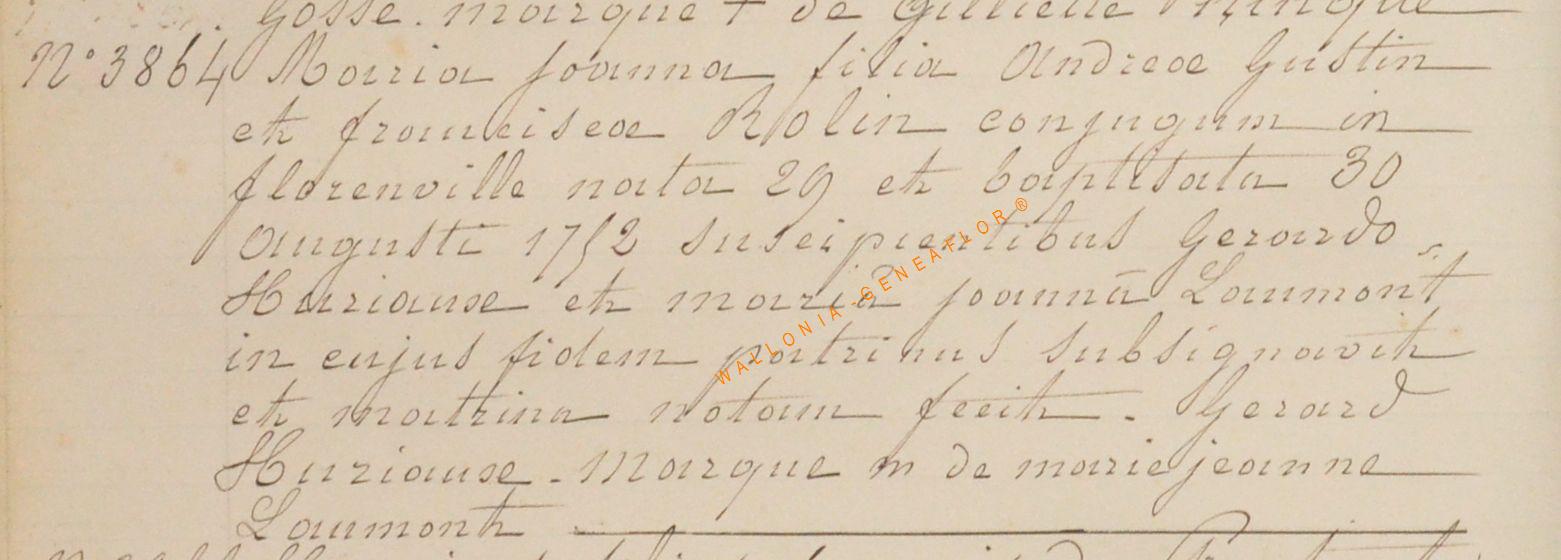 Gosse. marque + de Gillette
N° 3864 Maria joanna filia Andreae Gustin
et franciscae Rolin conjugum in
florenville nata 29 et baptisata 30
Augusti 1752 suscipientibus Gerardo
Huriause et mariâ joannā Laumont
in cujus fidem patrinus subsignavit
et matrina notam fecit. Gerard
Huriause. Marque m de marie jeanne
Laumont
WALLONIA-GENEAFLOR®